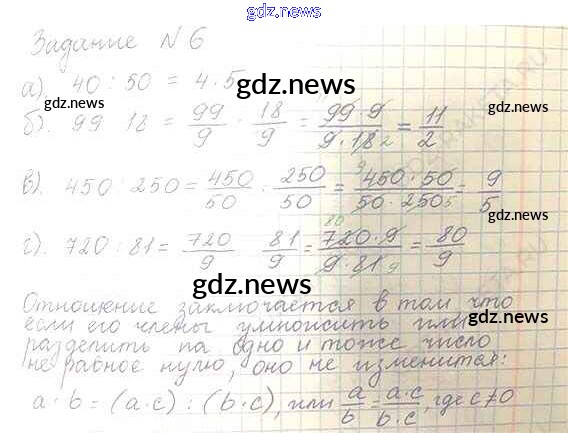 gdz.news
Задание N 6
а). 40 : 50 = 4 · 5
gdz.news
gdz.news
б). 99 18 = 99/9 · 18/9 = 99·9/9·18 2 = 11/2
gdz.news
gdz.news
в). 450 : 250 = 450/50 : 250/50 = 9 450·50/50·250 5 = 9/5
gdz.news
г). 720 : 81 = 720/9 81/9 = 80 720·9/9·81 9 = 80/9
gdz.news
Отношение заключается в том что
если его члены умножить или
gdz.news
разделить на одно и тоже число
не равное нулю, оно не изменится:
gdz.news
a · b = (a·c) : (b·c), или a/b = a·c/b·c, где c≠0